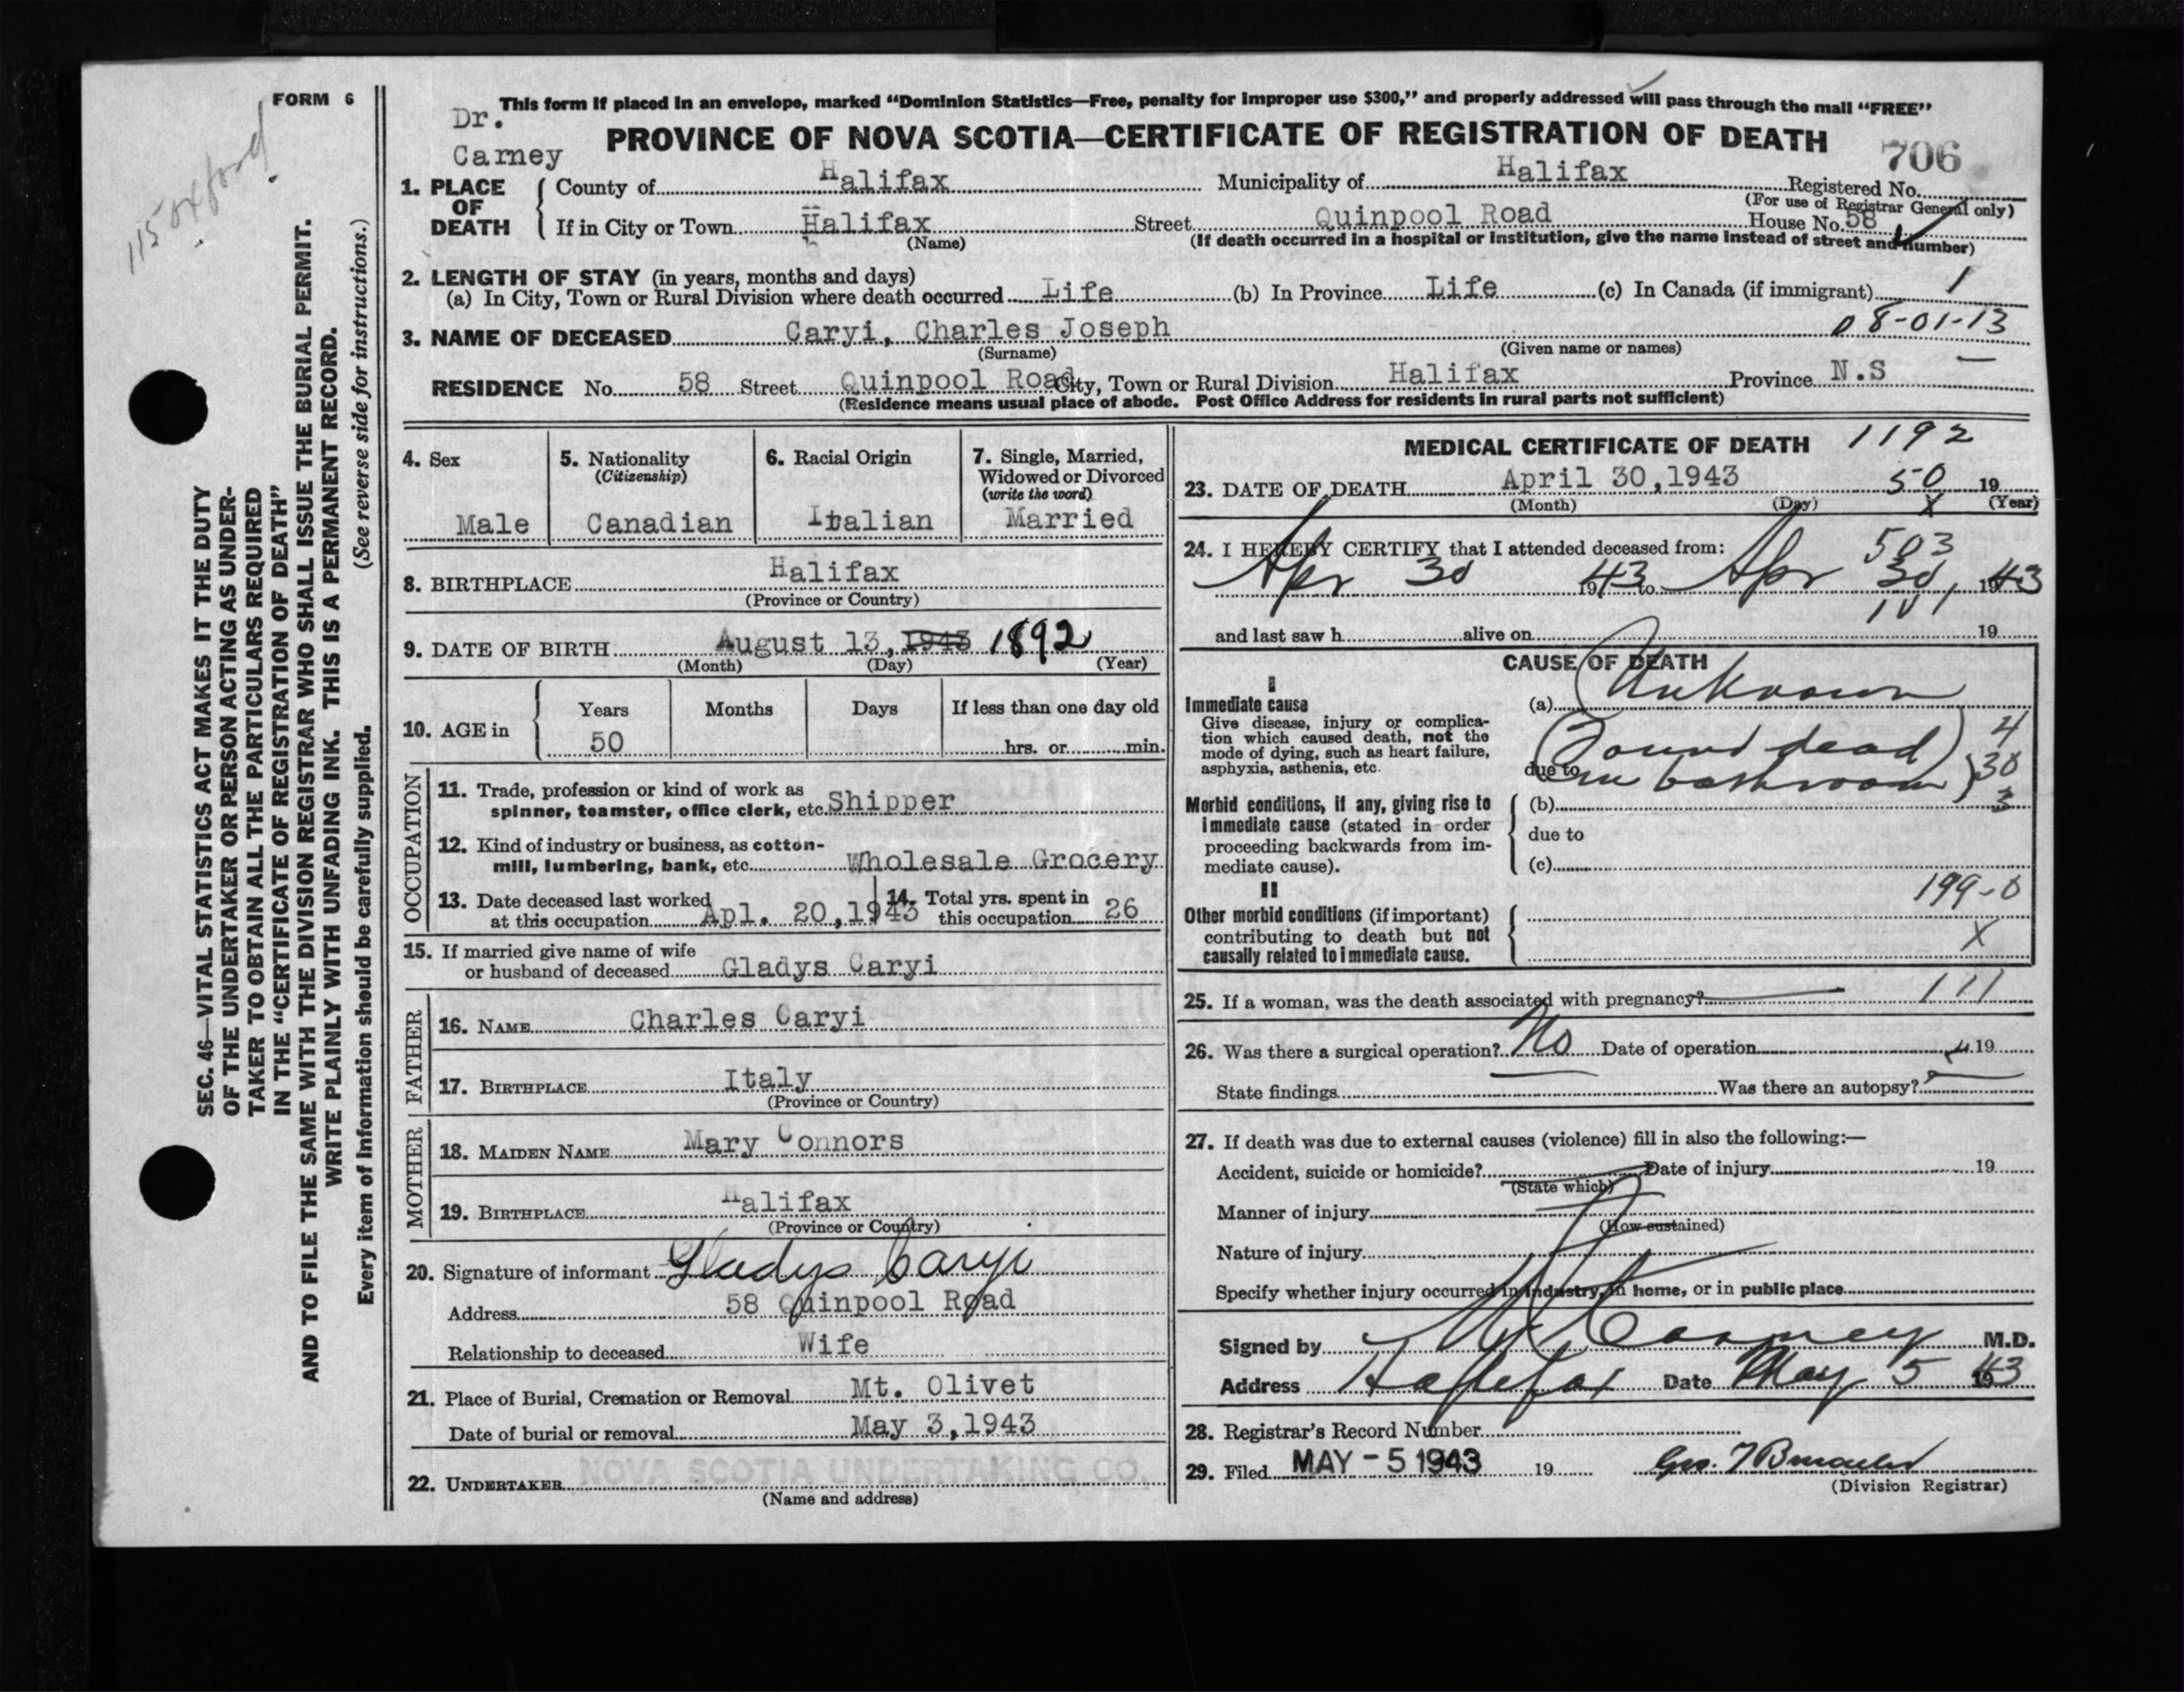 FORM 6
115 Oxford
This form if placed in an envelope, marked “Dominion Statistics—Free, penalty for improper use $300,” and properly addressed will pass through the mail “FREE”
Dr.
Carney
PROVINCE OF NOVA SCOTIA—CERTIFICATE OF REGISTRATION OF DEATH
706
1. PLACE OF DEATH
County of Halifax Municipality of Halifax Registered No.
(For use of Registrar General only)
If in City or Town Halifax Street Quinpool Road House No. 58
(Name) (If death occurred in a hospital or institution, give the name instead of street and number)
2. LENGTH OF STAY (in years, months and days)
(a) In City, Town or Rural Division where death occurred Life (b) In Province Life (c) In Canada (if immigrant) 1
08-01-13
3. NAME OF DECEASED Caryi, Charles Joseph
(Surname) (Given name or names)
RESIDENCE No. 58 Street Quinpool Road City, Town or Rural Division Halifax Province N.S —
(Residence means usual place of abode. Post Office Address for residents in rural parts not sufficient)
4. Sex
Male
5. Nationality
(Citizenship)
Canadian
6. Racial Origin
Italian
7. Single, Married,
Widowed or Divorced
(write the word)
Married
8. BIRTHPLACE Halifax
(Province or Country)
9. DATE OF BIRTH August 13, 1943 1892
(Month) (Day) (Year)
10. AGE in
Years Months Days If less than one day old
50 hrs. or min.
OCCUPATION
11. Trade, profession or kind of work as
spinner, teamster, office clerk, etc. Shipper
12. Kind of industry or business, as cotton-
mill, lumbering, bank, etc. Wholesale Grocery
13. Date deceased last worked
at this occupation Apl. 20,1943
14. Total yrs. spent in
this occupation 26
15. If married give name of wife
or husband of deceased Gladys Caryi
FATHER
16. NAME Charles Caryi
17. BIRTHPLACE Italy
(Province or Country)
MOTHER
18. MAIDEN NAME Mary Connors
19. BIRTHPLACE Halifax
(Province or Country)
20. Signature of informant Gladys Caryi
Address 58 Quinpool Road
Relationship to deceased Wife
21. Place of Burial, Cremation or Removal Mt. Olivet
Date of burial or removal May 3,1943
22. UNDERTAKER NOVA SCOTIA UNDERTAKING CO.
(Name and address)
MEDICAL CERTIFICATE OF DEATH 1192
23. DATE OF DEATH April 30,1943 50 19
(Month) (Day) X (Year)
24. I HEREBY CERTIFY that I attended deceased from: 503
Apr 30 1943 to Apr 30, 1943
101
and last saw h alive on 19
CAUSE OF DEATH
I
Immediate cause
Give disease, injury or complica-
tion which caused death, not the
mode of dying, such as heart failure,
asphyxia, asthenia, etc.
(a) Unknown
(Found dead
due to in bathroom)
4
30
3
Morbid conditions, if any, giving rise to
immediate cause (stated in order
proceeding backwards from im-
mediate cause).
(b)
due to
(c)
II
199-0
Other morbid conditions (if important)
contributing to death but not
causally related to immediate cause.
X
25. If a woman, was the death associated with pregnancy? — 111
26. Was there a surgical operation? No Date of operation 19
State findings Was there an autopsy?
27. If death was due to external causes (violence) fill in also the following:—
Accident, suicide or homicide? Date of injury 19
(State which)
Manner of injury
(How sustained)
Nature of injury
Specify whether injury occurred in industry, in home, or in public place
Signed by Carney M.D.
Address Halifax Date May 5 1943
28. Registrar's Record Number
29. Filed MAY - 5 1943 19
(Division Registrar)
SEC. 46—VITAL STATISTICS ACT MAKES IT THE DUTY
OF THE UNDERTAKER OR PERSON ACTING AS UNDER-
TAKER TO OBTAIN ALL THE PARTICULARS REQUIRED
IN THE “CERTIFICATE OF REGISTRATION OF DEATH”
AND TO FILE THE SAME WITH THE DIVISION REGISTRAR WHO SHALL ISSUE THE BURIAL PERMIT.
WRITE PLAINLY WITH UNFADING INK. THIS IS A PERMANENT RECORD.
Every item of information should be carefully supplied. (See reverse side for instructions.)